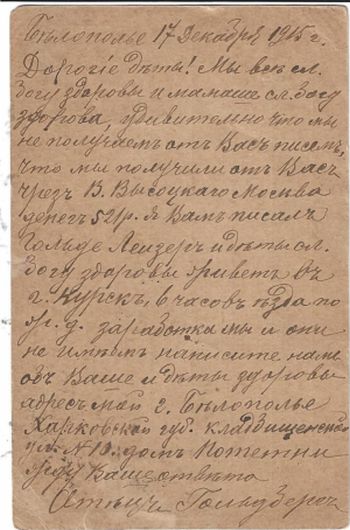 Бѣлополье 17 Декабря 1915 г.
Дорогіе дѣты! Мы всѣ сл.
Богу здоровы и мамаше сл. Богу
здорова, удивительно что мы
не получаемъ отъ Васъ писемъ,
что мы получили отъ Васъ
чрезъ В. Высоцкаго Москва
денегъ 52 р. я Вамъ писалъ
Гольде Лейзеръ и дѣты сл.
Богу здоровы въ
г. Курскъ, 6 часовъ ѣзда по
ж. д. заработка мы и они
не имѣем напишите нам
объ Ваше и дѣты здоровы
адресъ мой г. Бѣлополье
Харковской губ. кладбищенская
ул. N 10. домъ
жду Ваше отвѣта
Отѣцъ